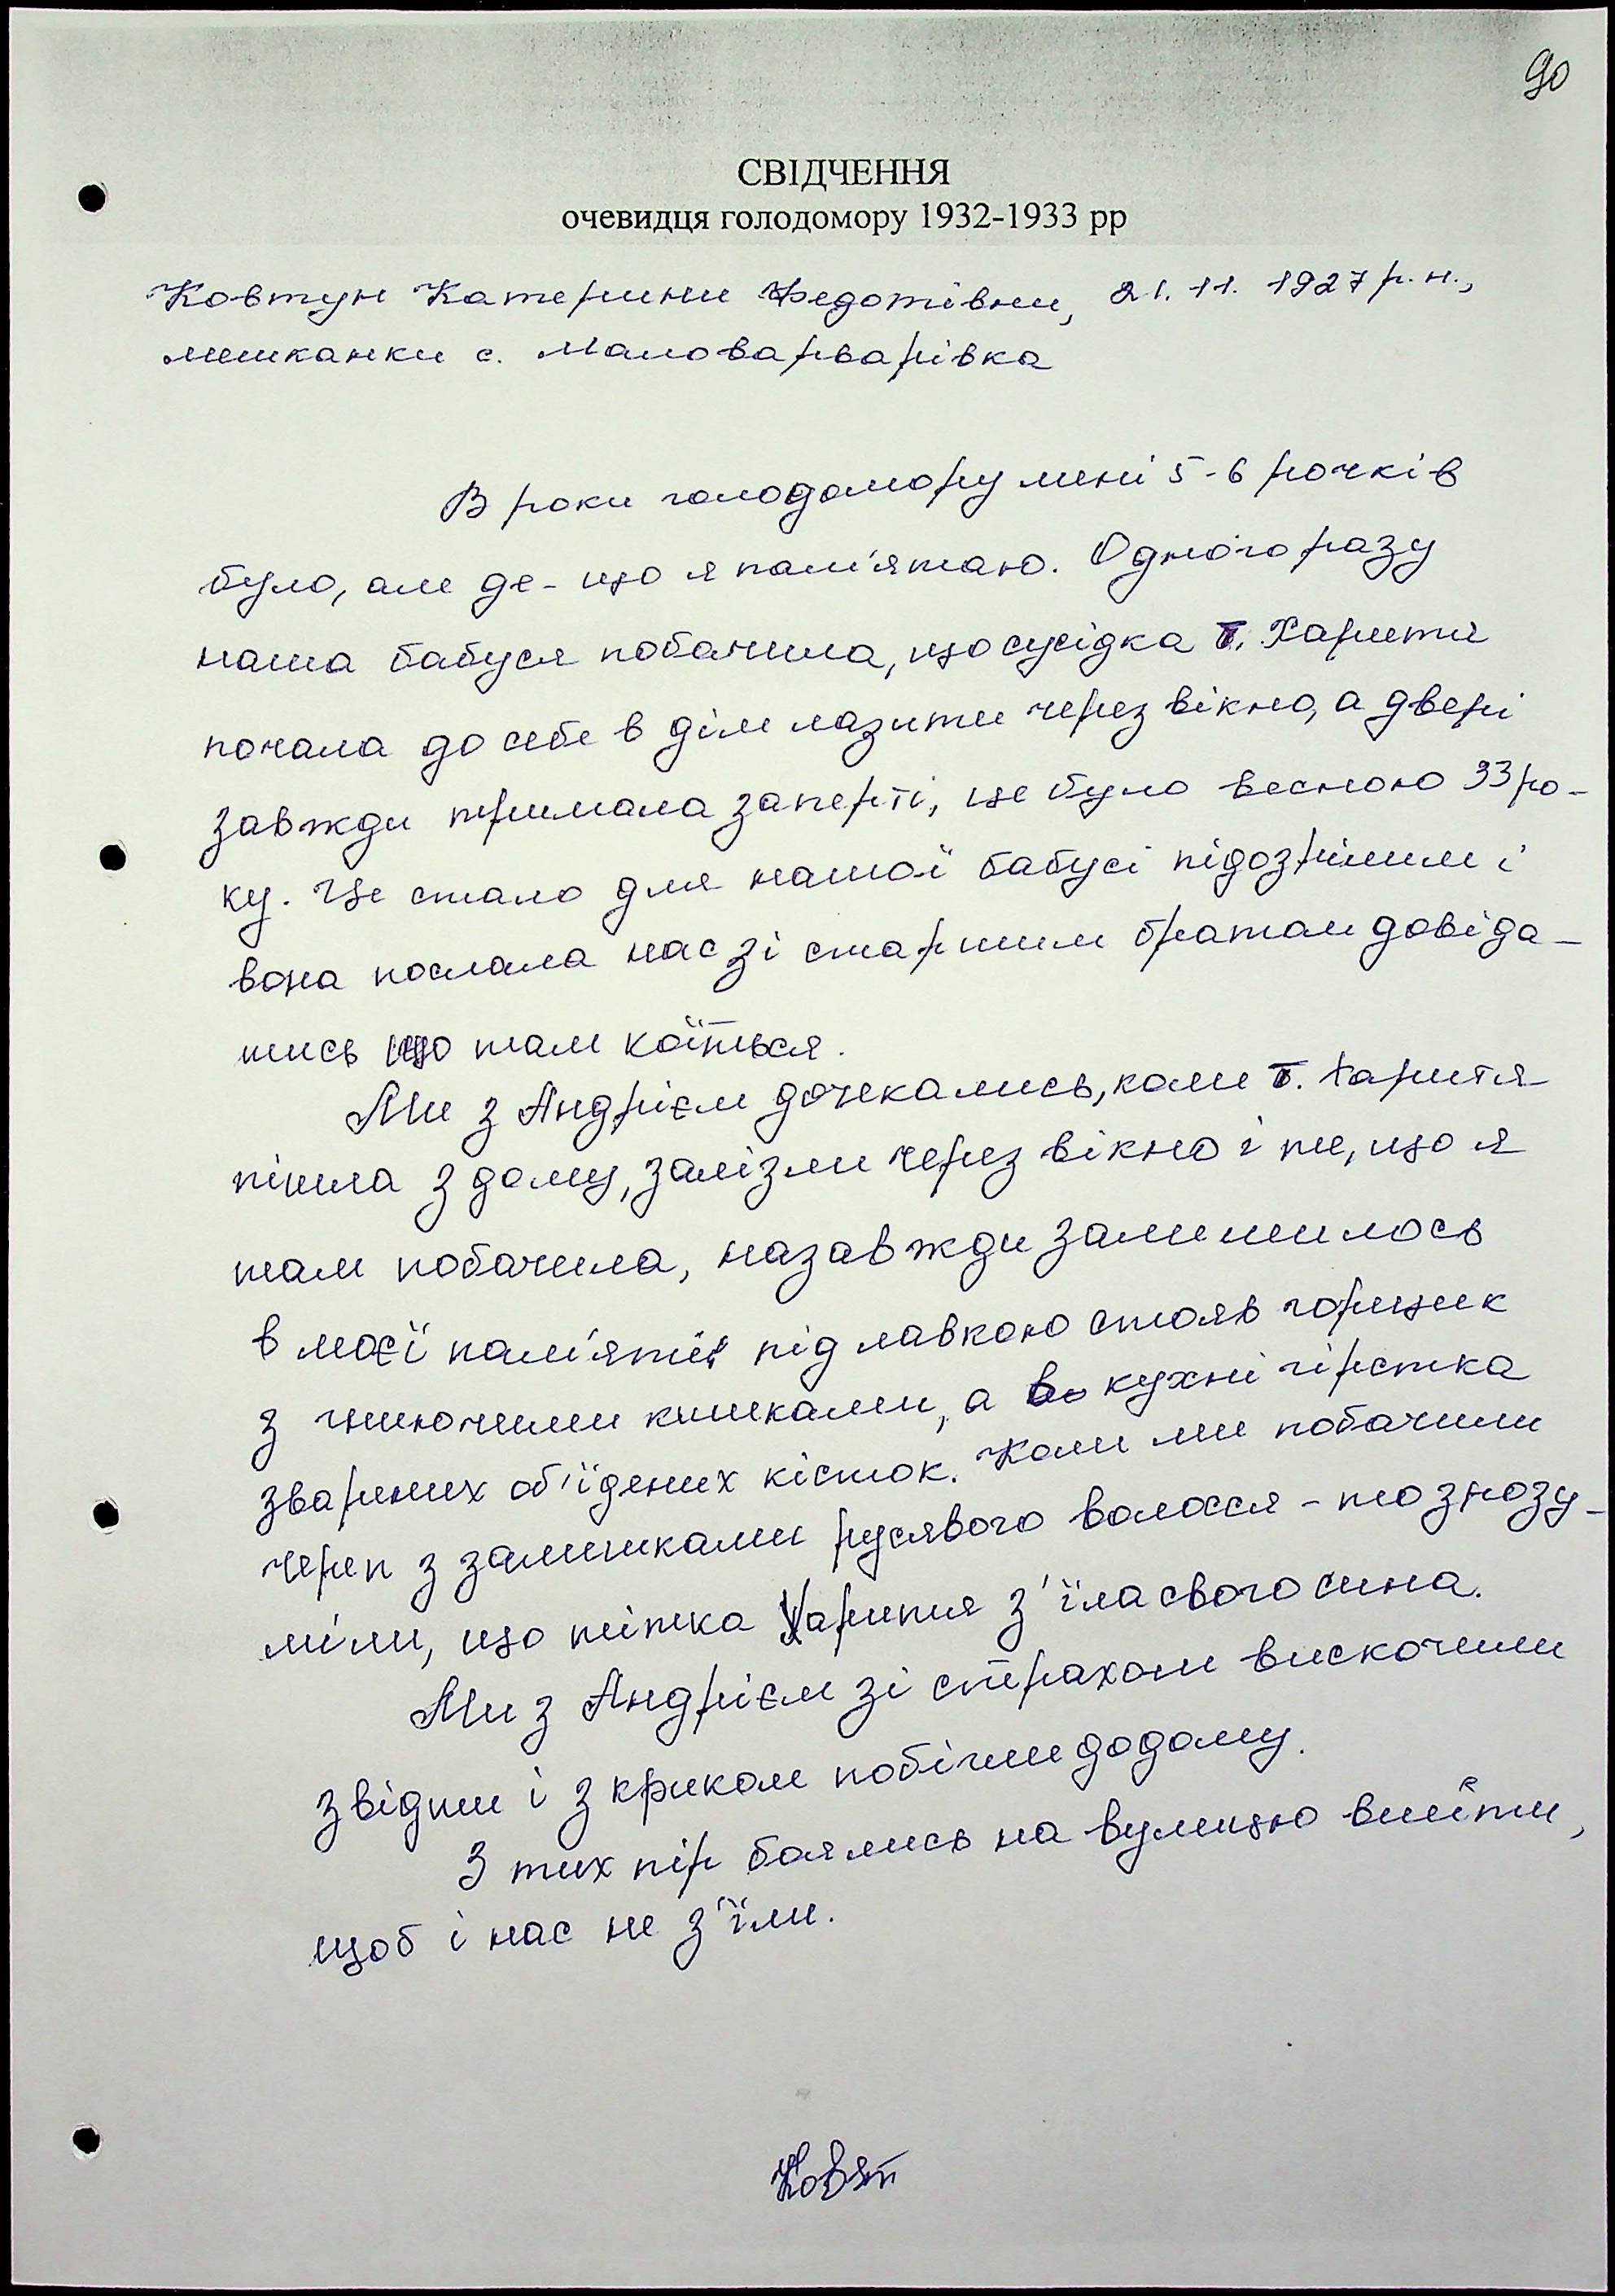 90
СВІДЧЕННЯ
очевидця голодомору 1932-1933 рр
Ковтун Катерини Федотівни, 21. 11. 1927 р. н.,
мешканки с. Маловарварівка
В роки голодомору мені 5-6 рочків
було, але де-що я пам'ятаю. Одного разу
наша бабуся побачила, що сусідка т. Харитя
почала до себе в дім лазити через вікно, а двері
завжди тримала заперті, це було весною 33 ро-
ку. Це стало для нашої бабусі підозрілим і
вона послала нас зі старшим братом довіда-
тись що там коїться.
Ми з Андрієм дочекались, коли т. Харитя
пішла з дому, залізли через вікно і те, що я
там побачила, назавжди залишилось
в моєї пам'яті: під лавкою стояв горщик
з гниючими кишками, а в кухні гірстка
зварених об'їдених кісток. Коли ми побачили
череп з залишками русявого волосся - то зрозу-
міли, що тітка Харитя з'їла свого сина.
Ми з Андрієм зі страхом вискочили
звідти і з криком побігли додому.
З тих пір боялись на вулицю вийти,
щоб і нас не з'їли.